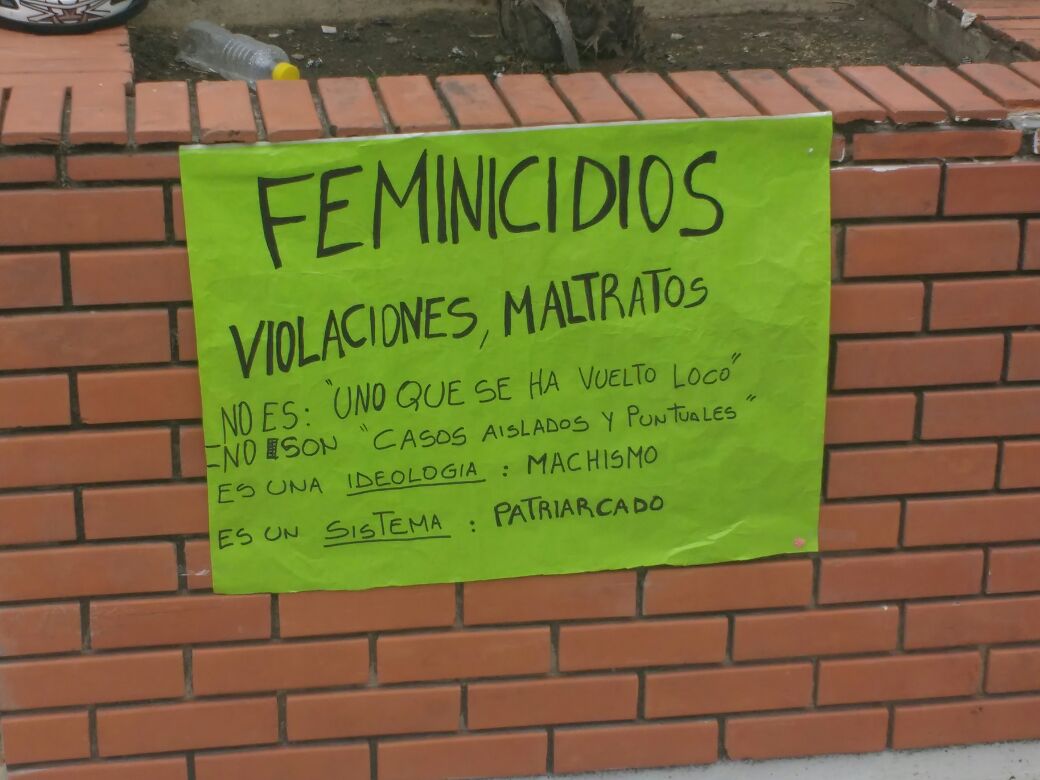 FEMINICIDIOS
VIOLACIONES, MALTRATOS
NO ES: "UNO QUE SE HA VUELTO LOCO"
-NO SON "CASOS AISLADOS Y PUNTUALES"
ES UNA IDEOLOGIA : MACHISMO
ES UN SISTEMA : PATRIARCADO